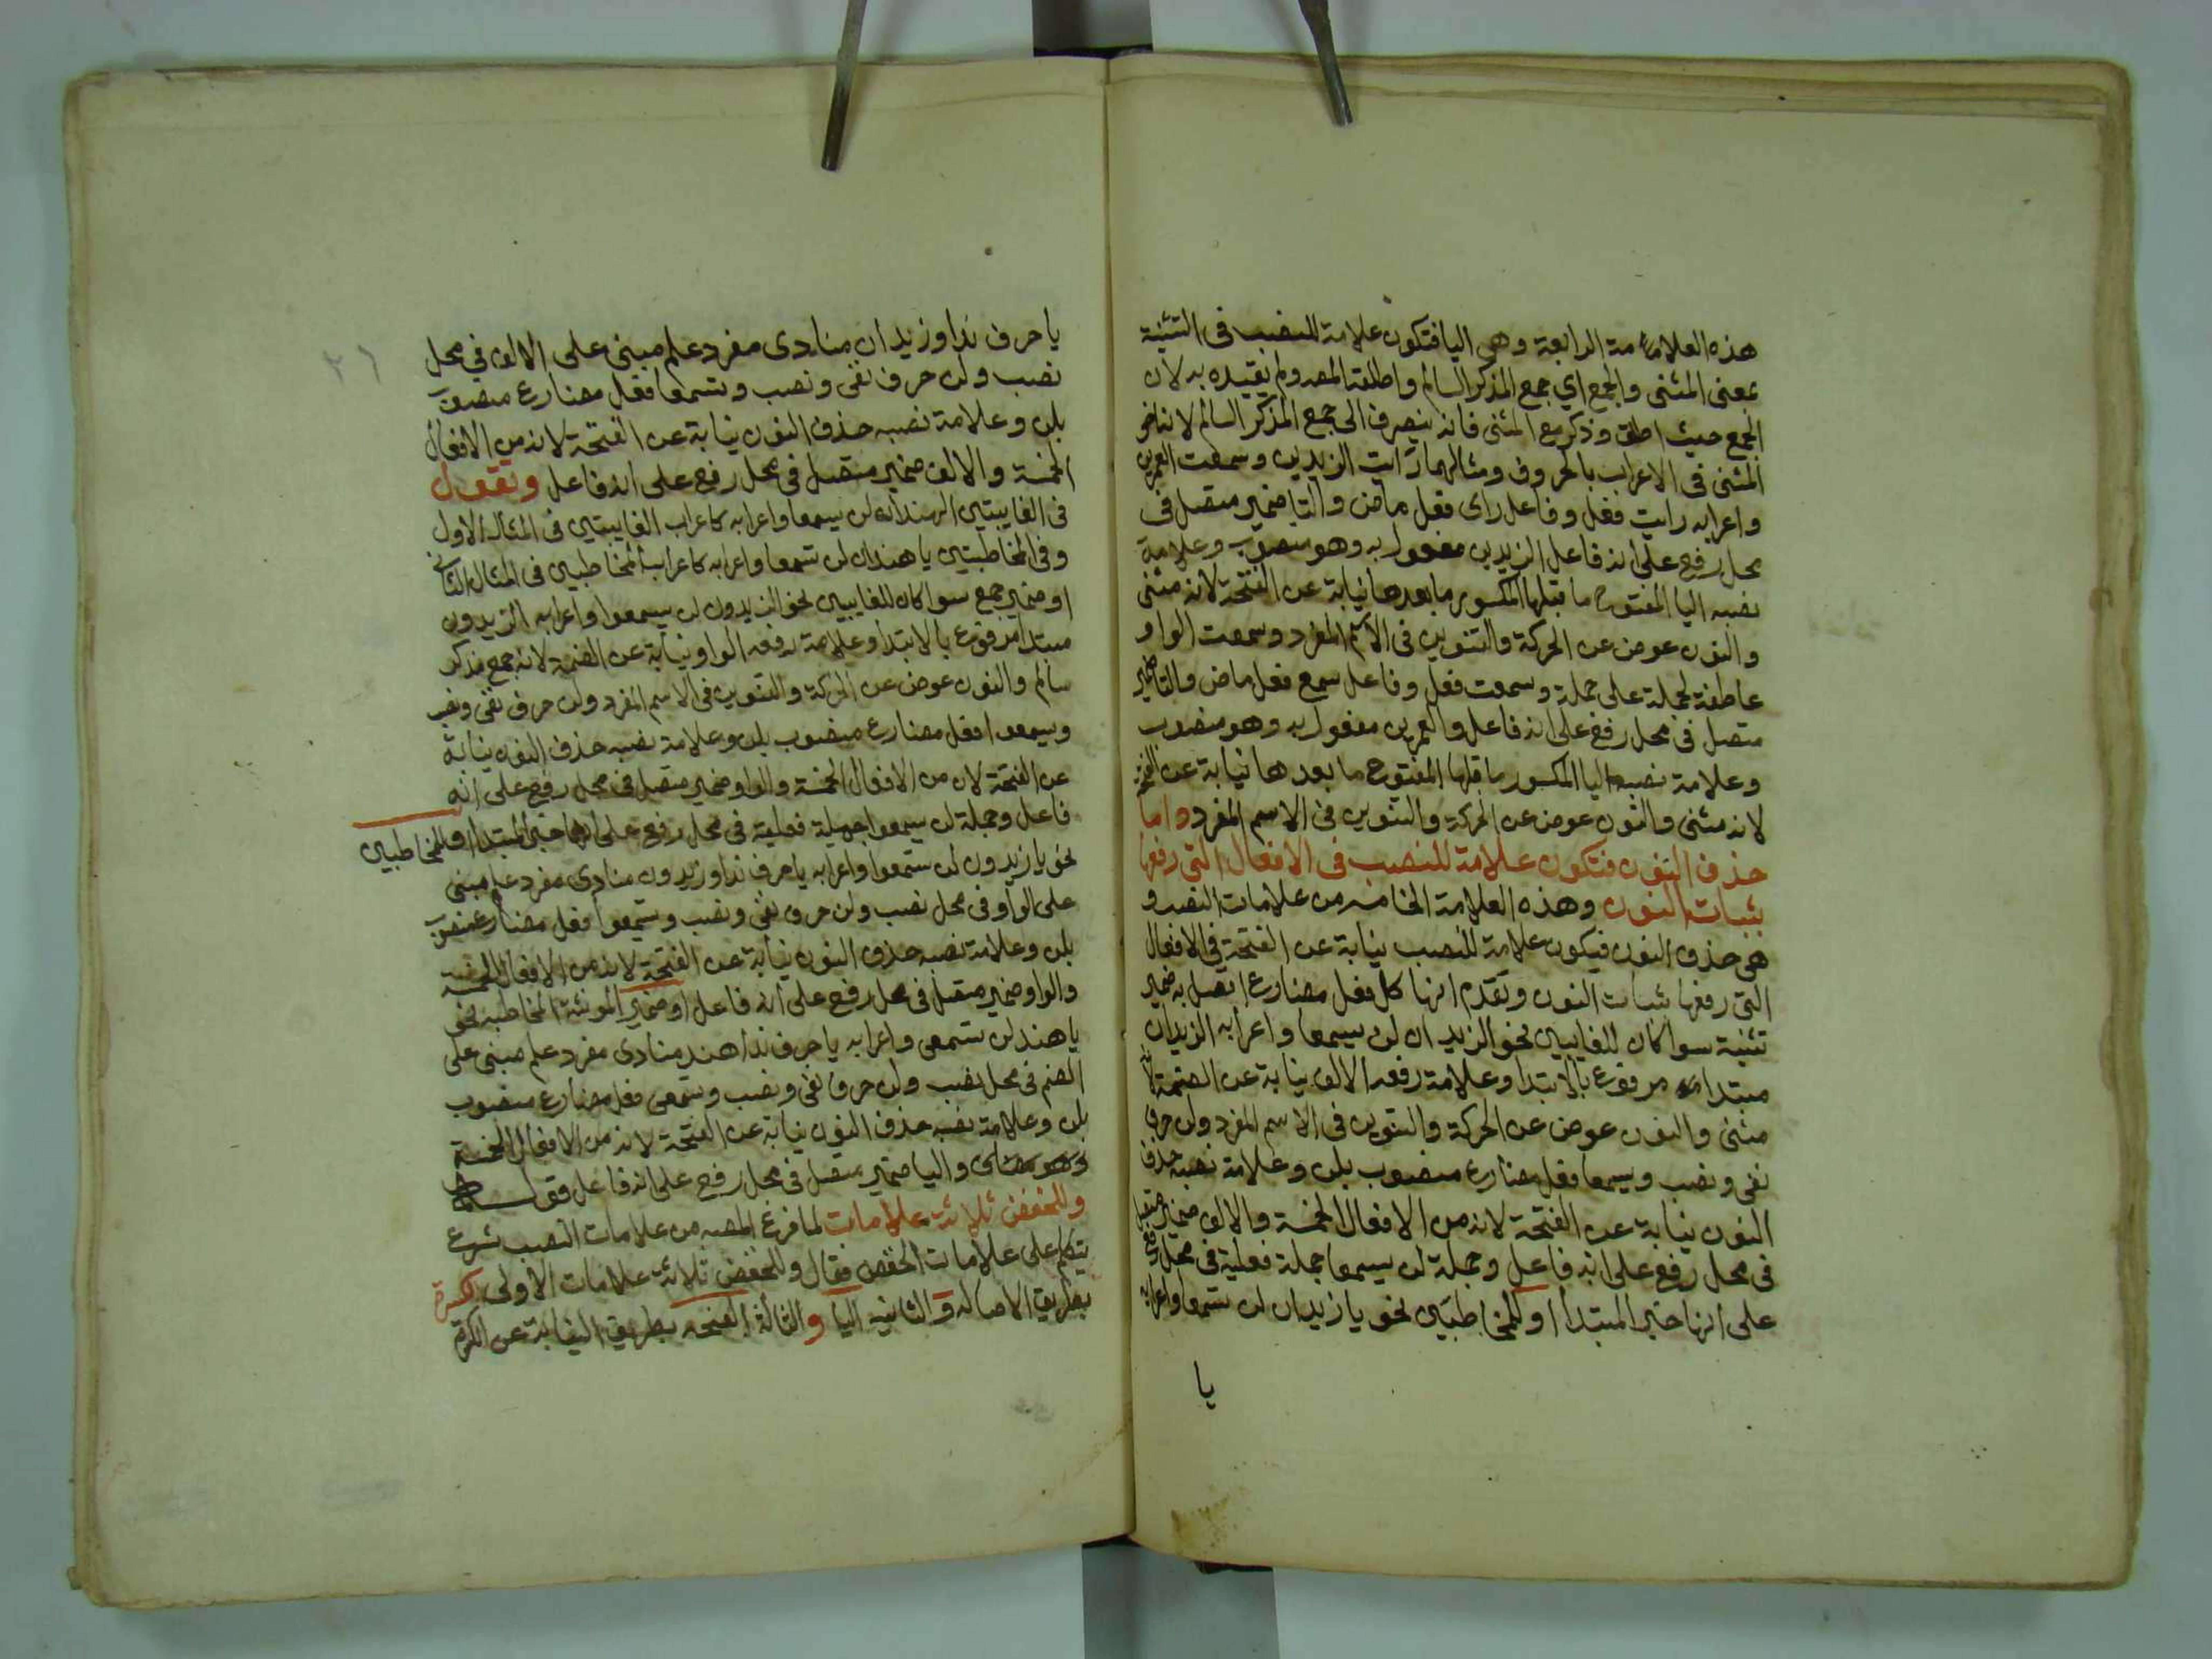 هذه العلامة الرابعة وهي اليا فتكون علامة للنصب في التثنية
بمعنى المثنى والجمع اي جمع المذكر السالم واطلقه المص ولم يقيده به لان
الجمع حيث اطلق وذكر مع المثنى فانه ينصرف الى جمع المذكر السالم لانه اخو
المثنى في الاعراب بالحروف ومثالهما رايت الزيدين وسمعت العمرين
واعرابه رايت فعل وفاعل راى فعل ماض والتا ضمير متصل في
محل رفع على انه فاعل الزيدين مفعول به وهو منصوب وعلامة
نصبه اليا المفتوح ما قبلها المكسور ما بعدها نيابة عن الفتحة لانه مثنى
والنون عوض عن الحركة والتنوين في الاسم المفرد وسمعت الواو
عاطفة لجملة على جملة وسمعت فعل وفاعل سمع فعل ماض والتا ضمير
متصل في محل رفع على انه فاعل والعمرين مفعول به وهو منصوب
وعلامة نصبه اليا المكسور ما قبلها المفتوح ما بعدها نيابة عن الفتحة
لانه مثنى والنون عوض عن الحركة والتنوين في الاسم المفرد واما
حذف النون فتكون علامة للنصب في الافعال التي رفعها
بثبات النون وهذه العلامة الخامسه من علامات النصب و
هي حذف النون فيكون علامة للنصب نيابة عن الفتحة في الافعال
التي رفعها بثبات النون وتقدم انها كل فعل مضارع اتصل به ضمير
تثنية سوا كان للغايبين نحو الزيدان لن يسمعا واعرابه الزيدان
مبتدا مرفوع بالابتدا وعلامة رفعه الالف نيابة عن الضمة لانه
مثنى والنون عوض عن الحركة والتنوين في الاسم المفرد ولن حرف
نفى ونصب ويسمعا فعل مضارع منصوب بلن وعلامة نصبه حذف
النون نيابة عن الفتحة لانه من الافعال الخمسة والالف ضمير متصل
في محل رفع على انه فاعل وجملة لن يسمعا جملة فعلية في محل رفع
على انها خبر المبتدا او للمخاطبين نحو يا زيدان لن تسمعا واعرابه
يا
٢٦
يا حرف ندا وزيدان منادى مفرد علم مبني على الالف في محل
نصب ولن حرف نفى ونصب وتسمعا فعل مضارع منصوب
بلن وعلامة نصبه حذف النون نيابة عن الفتحة لانه من الافعال
الخمسة والالف ضمير متصل في محل رفع على انه فاعل وتقول
في الغايبتين الهندان لن يسمعا واعرابه كاعراب الغايبتين في المثال الاول
وفي المخاطبتين يا هندان لن تسمعا واعرابه كاعراب المخاطبين في المثال الثاني
او ضمير جمع سوا كان للغايبين نحو الزيدون لن يسمعوا واعرابه الزيدون
مبتدا مرفوع بالابتدا وعلامة رفعه الواو نيابة عن الضمة لانه جمع مذكر
سالم والنون عوض عن الحركة والتنوين في الاسم المفرد ولن حرف نفى ونصب
ويسمعوا فعل مضارع منصوب بلن وعلامة نصبه حذف النون نيابة
عن الفتحة لان من الافعال الخمسة والواو ضمير متصل في محل رفع على انه
فاعل وجملة لن يسمعوا جملة فعلية في محل رفع على انها خبر المبتدا او للمخاطبين
نحو يا زيدون لن تسمعوا واعرابه يا حرف ندا وزيدون منادى مفرد علم مبنى
على الواو في محل نصب ولن حرف نفى ونصب وتسمعوا فعل مضارع منصوب
بلن وعلامة نصبه حذف النون نيابة عن الفتحة لانه من الافعال الخمسة
والواو ضمير متصل في محل رفع على انه فاعل او ضمير المونثة المخاطبه نحو
يا هند لن تسمعى واعرابه يا حرف ندا هند منادى مفرد علم مبنى على
الضم في محل نصب ولن حرف نفى ونصب وتسمعى فعل مضارع منصوب
بلن وعلامة نصبه حذف النون نيابة عن الفتحة لانه من الافعال الخمسة
واليا ضمير متصل في محل رفع على انه فاعل
وللخفض ثلاثة علامات لما فرغ المص من علامات النصب شرع
يتكلم على علامات الخفض فقال وللخفض ثلاثة علامات الاولى الكسرة
بطريق الاصاله والثانيه اليا والثالثة الفتحه بطريق النيابة عن الكسرة